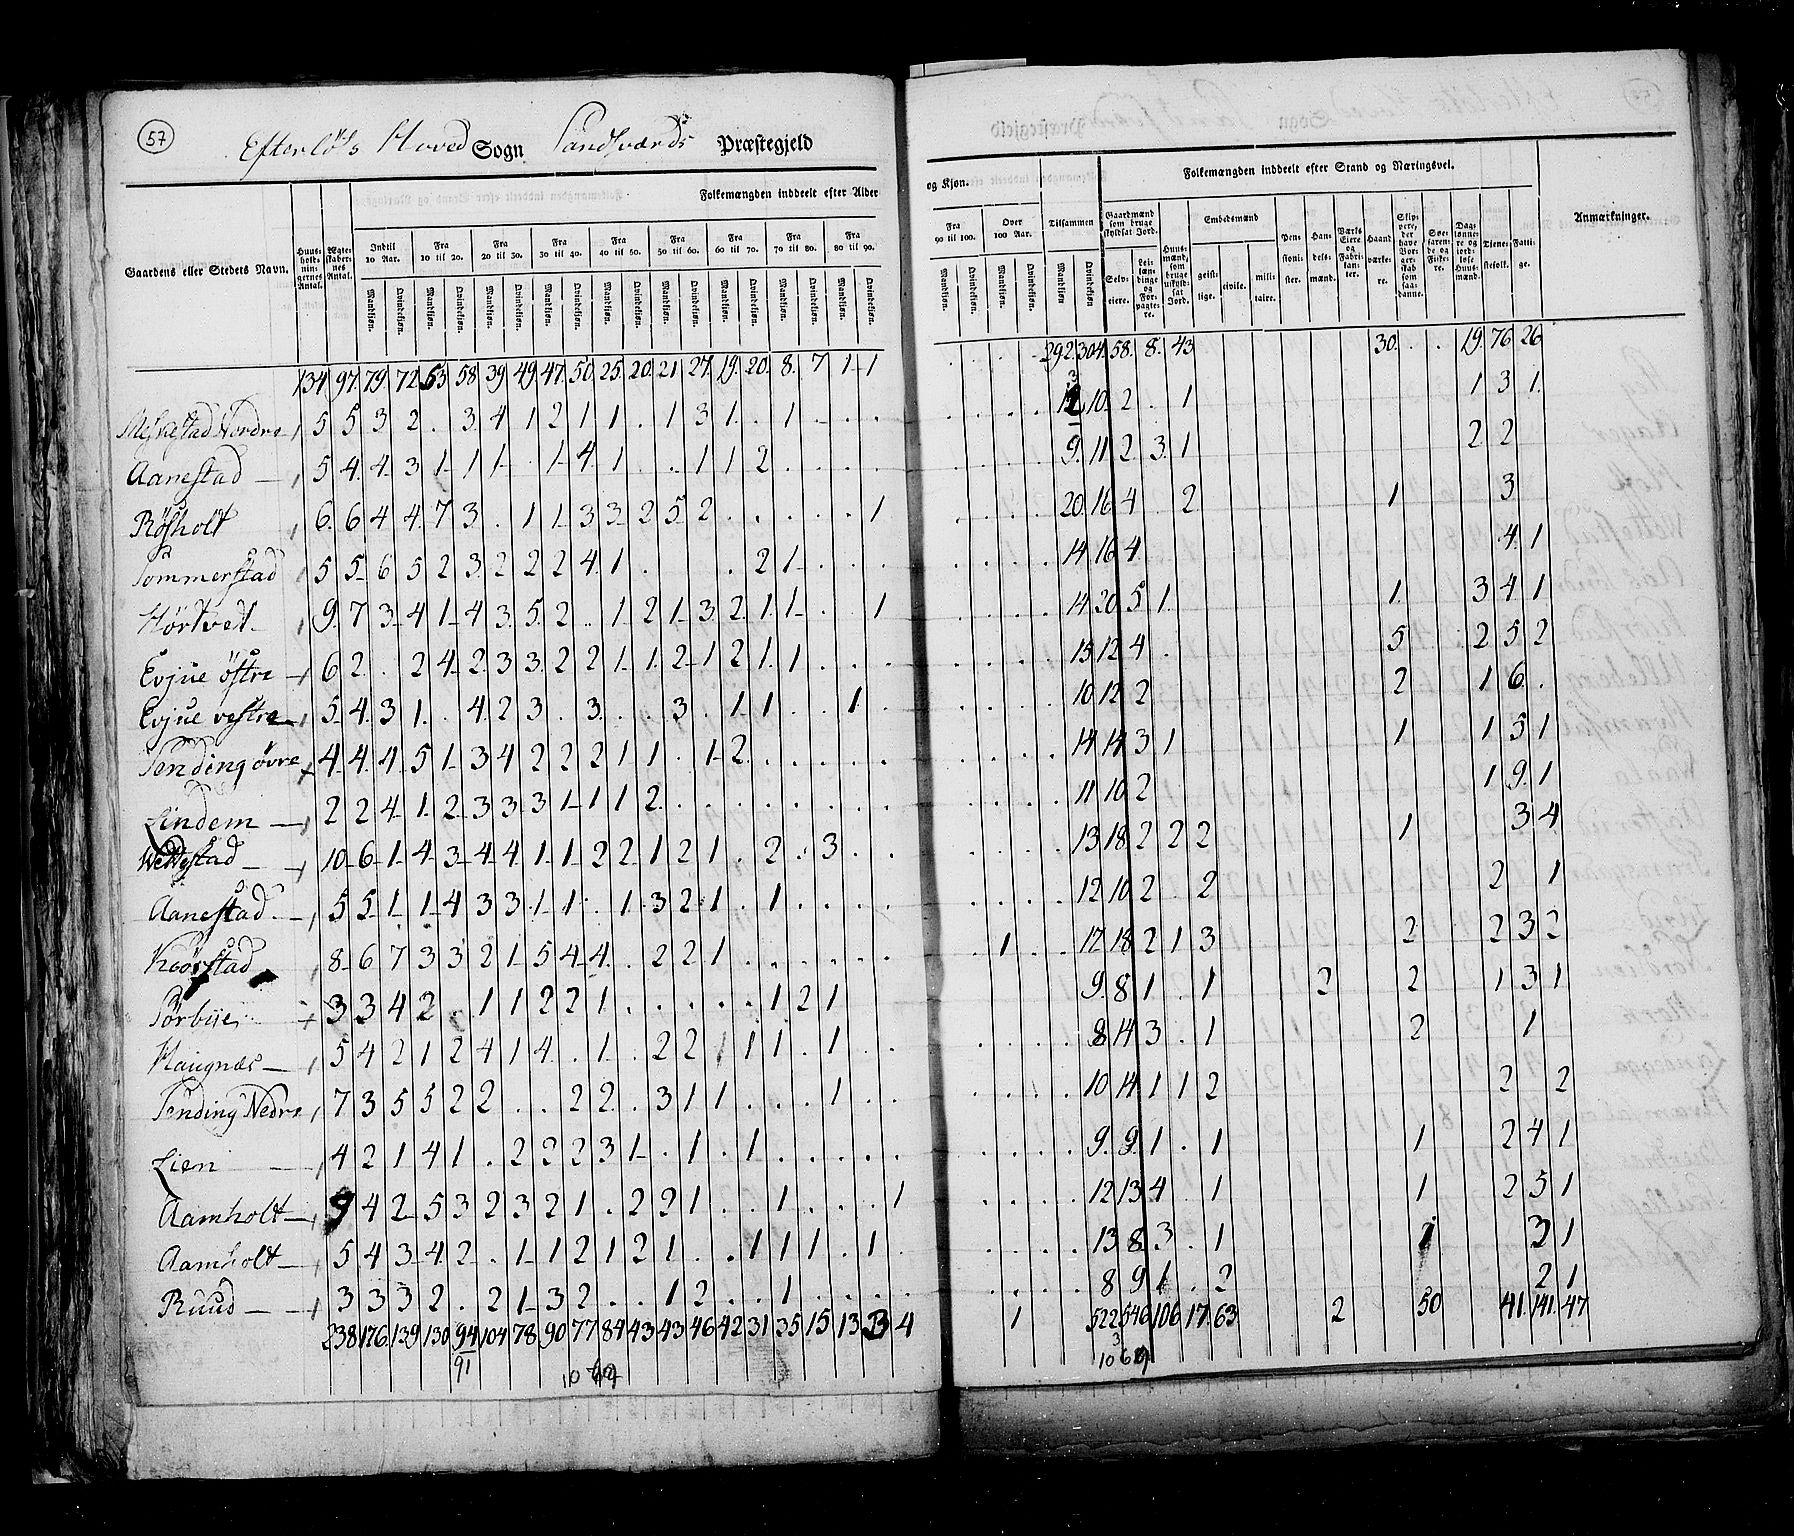 57
Efterlöts Hoved Sogn Sandsværds Præstegjeld
Folkemængden inddeelt efter Alder og Kjøn.
Folkemængden inddeelt efter Stand og Næringsvei.
Gaardens eller Stedets Navn.
Indtil 10 Aar. Fra 10 til 20. Fra 20 til 30. Fra 30 til 40. Fra 40 til 50. Fra 50 til 60. Fra 60 til 70. Fra 70 til 80. Fra 80 til 90. Fra 90 til 100. Over 100 Aar. Tilsammen
Mandkjøn. Qvindekjøn.
Gaardmænd som bruge skyldsat Jord. Selveiere. Leilændinge og Forpagtere. Huusmænd, som bruge uskyldsat Jord. Embedsmænd geistlige. civile. militaire. Pensionister. Handelsmænd. Værks Eiere og Fabrikanter. Haandværkere. Tjenestefolk. Fattige. Anmærkninger.
134 97 79 72 53 58 39 49 47 50 25 20 21 27 19 20 8 7 1 1 292 304 58 8 43 30 19 76 26
Aanestad 5 4 4 3 1 1 1 . 1 4 1 . . 1 1 2 . . . . 9 11 2 3 1 2 2
Rösholt 6 6 4 4 7 3 . 1 1 3 3 2 5 2 . . . . . 1 20 16 4 2 1 3
Sommerstad 5 5 6 5 2 3 2 2 2 4 1 . . . . 2 1 . . . 14 16 4 4 1
Hörtvet 9 7 3 4 1 4 3 5 2 . 1 2 1 3 2 1 1 . . 1 14 20 5 1 1 3 4 1
Evjue östre 6 2 . 2 4 2 3 3 2 2 1 1 2 1 2 1 1 . . . 15 12 4 5 2 5 2
Evjue vestre 5 4 3 1 . 4 2 3 . 3 . . 3 . 1 1 . . 1 . 10 12 2 2 1 6
Tending övre 4 4 4 5 1 3 4 2 2 2 1 1 . 1 2 14 14 3 1 1 1 5 1
Lindem 2 2 4 1 2 3 3 3 1 1 1 2 . . . . . . . . 11 10 2 1 9 1
Wettestad 10 6 1 4 3 4 4 1 1 2 2 1 2 1 . 2 . 3 . . 13 18 2 2 2 1 3 4
Aanestad 5 5 1 1 4 3 3 1 1 . 1 3 2 1 . 1 . . . . 12 10 2 2 2 1
8 6 7 3 3 2 1 5 4 4 . 2 2 1 . . . . . . 1 17 18 2 1 3 2 2 3 2
3 3 4 2 . 1 1 2 2 1 . . . . . 1 2 1 9 8 1 . 1 2 2 1 3 1
Haugnæs 5 4 2 1 2 4 1 4 . 1 . 2 2 1 1 1 . 1 . . 8 14 3 . 1 2 1
Tending Nedre 7 3 5 5 2 2 . . 2 2 . 3 1 1 . . . 1 . . 10 14 1 1 2 2 2
Lien 4 2 1 4 1 . 2 2 2 3 1 . 1 . 1 . . . . . 9 9 1 . 1 1 2 4 1
Aamholt 9 4 2 5 3 2 3 2 1 . 2 2 1 . . 1 . . . 1 12 13 4 . 1 1 2 5 1
Aamholt 5 4 3 4 2 . 1 1 2 1 2 1 . . 1 1 1 . 1 . 13 8 3 . 1 1 3 1
Ruud 3 3 3 2 . 2 1 3 2 . . 1 2 . . 1 . . . . 8 9 1 . 2 2 1
238 176 139 130 94 104 78 90 77 84 43 43 46 42 31 35 15 13 3 4 1 522 546 106 17 63 2 50 41 141 47
91